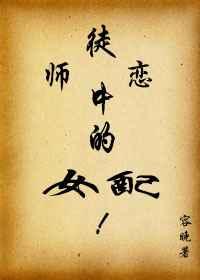 师徒恋
中的
女配！
容晚著